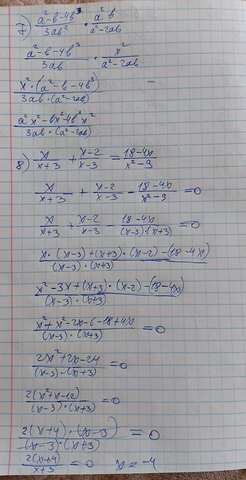 7) a²-b-4b³/3ab² · a²b/a²-2ab
a²-b-4b³/3ab · x²/a²-2ab
x²·(a²-b-4b³)/3ab·(a²-2ab)
a²x²-bx²-4b³x²/3ab·(a²-2ab)
8) x/x+3 + x-2/x-3 = 18-4x/x²-9
x/x+3 + x-2/x-3 - 18-4x/x²-9 = 0
x/x+3 + x-2/x-3 - 18-4x/(x-3)·(x+3) = 0
x·(x-3)+(x+3)·(x-2)-(18-4x)/(x-3)·(x+3)
x²-3x+(x+3)·(x-2)-(18-4x)/(x-3)·(x+3)
x²+x²-2x-6-18+4x/(x-3)·(x+3) = 0
2x²+2x-24/(x-3)·(x+3) = 0
2(x²+x-12)/(x-3)·(x+3) = 0
2(x+4)·(x-3)/(x-3)·(x+3) = 0
2(x+4)/x+3 = 0 x = -4